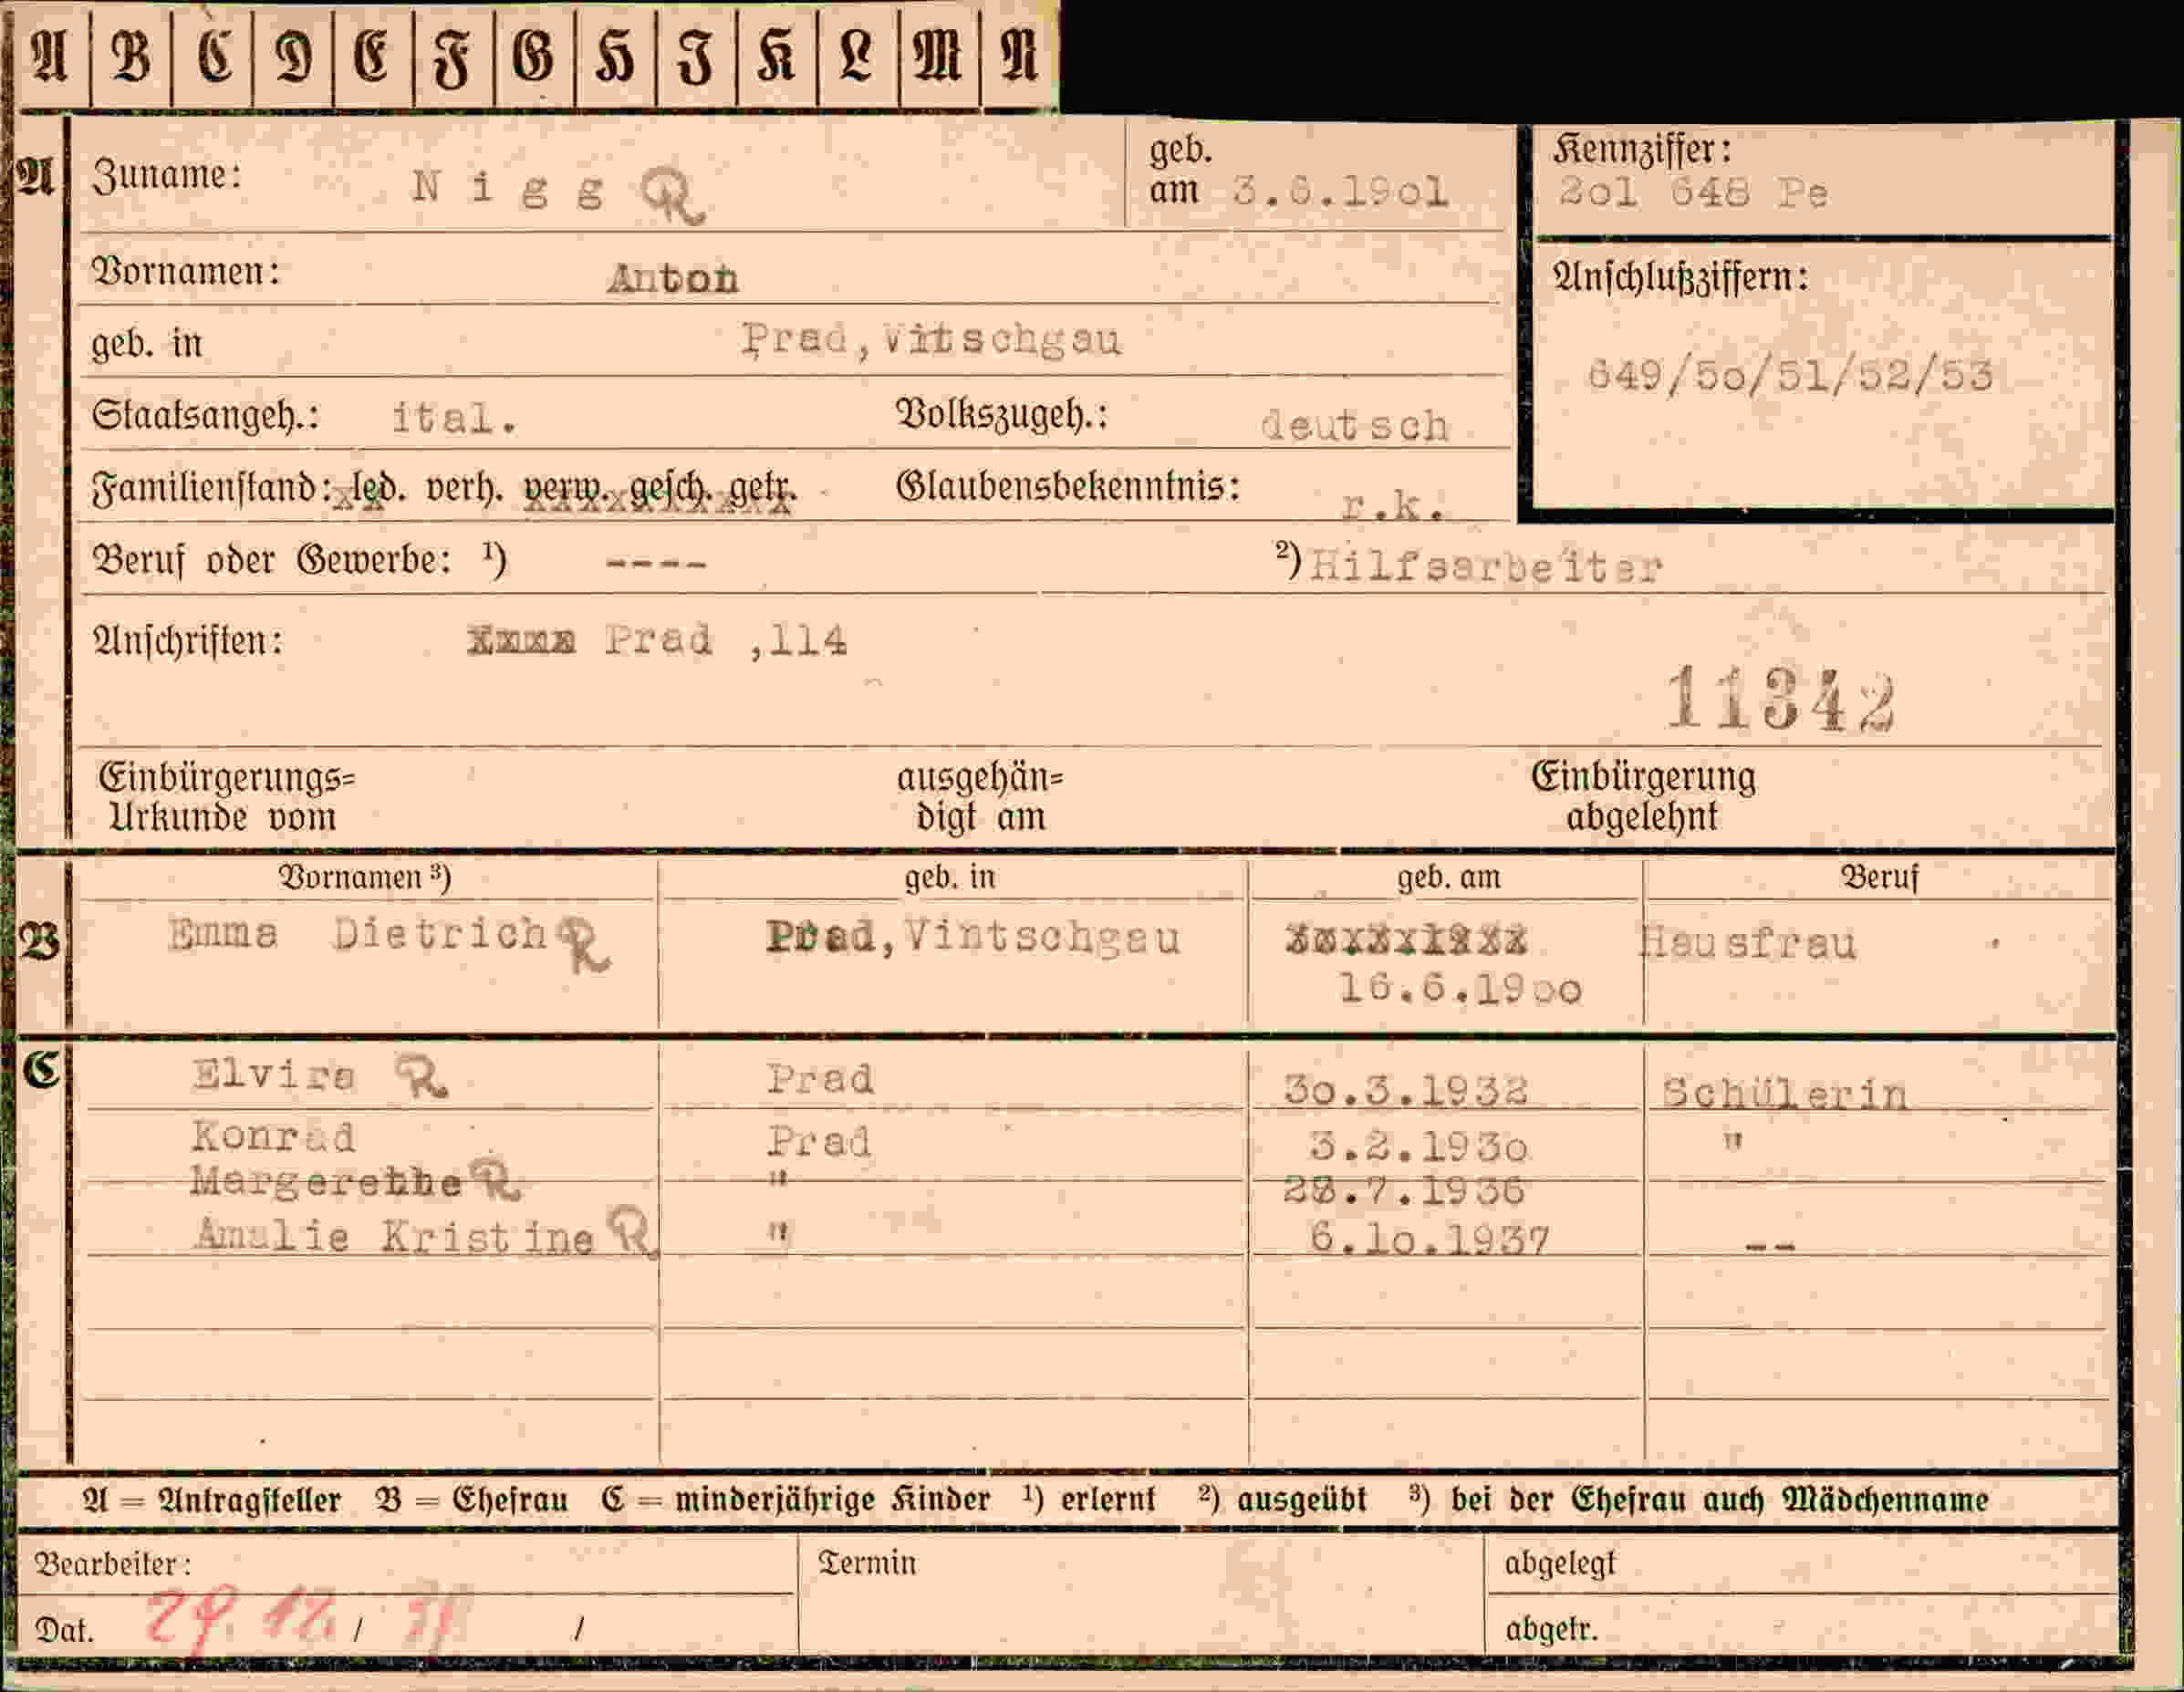 A B C D E F G H I K L M N
A Zuname: Nigg R geb. am 3.6.1901 Kennziffer: 201 648 Pe
Vornamen: Anton Anschlußziffern:
geb. in Prad,Vitschgau 649/50/51/52/53
Staatsangeh.: ital. Volkszugeh.: deutsch
Familienstand: led. verh. verw. gesch. getr. Glaubensbekenntnis: r.k.
Beruf oder Gewerbe: 1) ---- 2) Hilfsarbeiter
Anschriften: Prad ,114
11342
Einbürgerungs= ausgehän= Einbürgerung
Urkunde vom digt am abgelehnt
Vornamen 3) geb. in geb. am Beruf
B Emma Dietrich R Prad,Vintschgau Hausfrau
16.6.1900
C Elvira R Prad 30.3.1932 Schülerin
Konrad Prad 3.2.1930 "
Margarethe R " 28.7.1936
Amalie Kristine R " 6.10.1937 --
A = Antragsteller B = Ehefrau C = minderjährige Kinder 1) erlernt 2) ausgeübt 3) bei der Ehefrau auch Mädchenname
Bearbeiter: Termin abgelegt
Dat. 29. 12. / / abgetr.